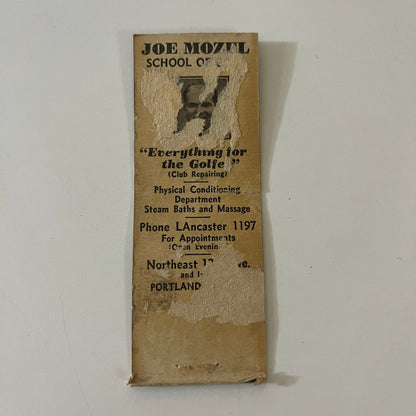 JOE MOZEL
SCHOOL OF
"Everything for
the Golfe "
(Club Repairing)
Physical Conditioning
Department
Steam Baths and Massage
Phone LAncaster 1197
For Appointments
Northeast
and
PORTLAND